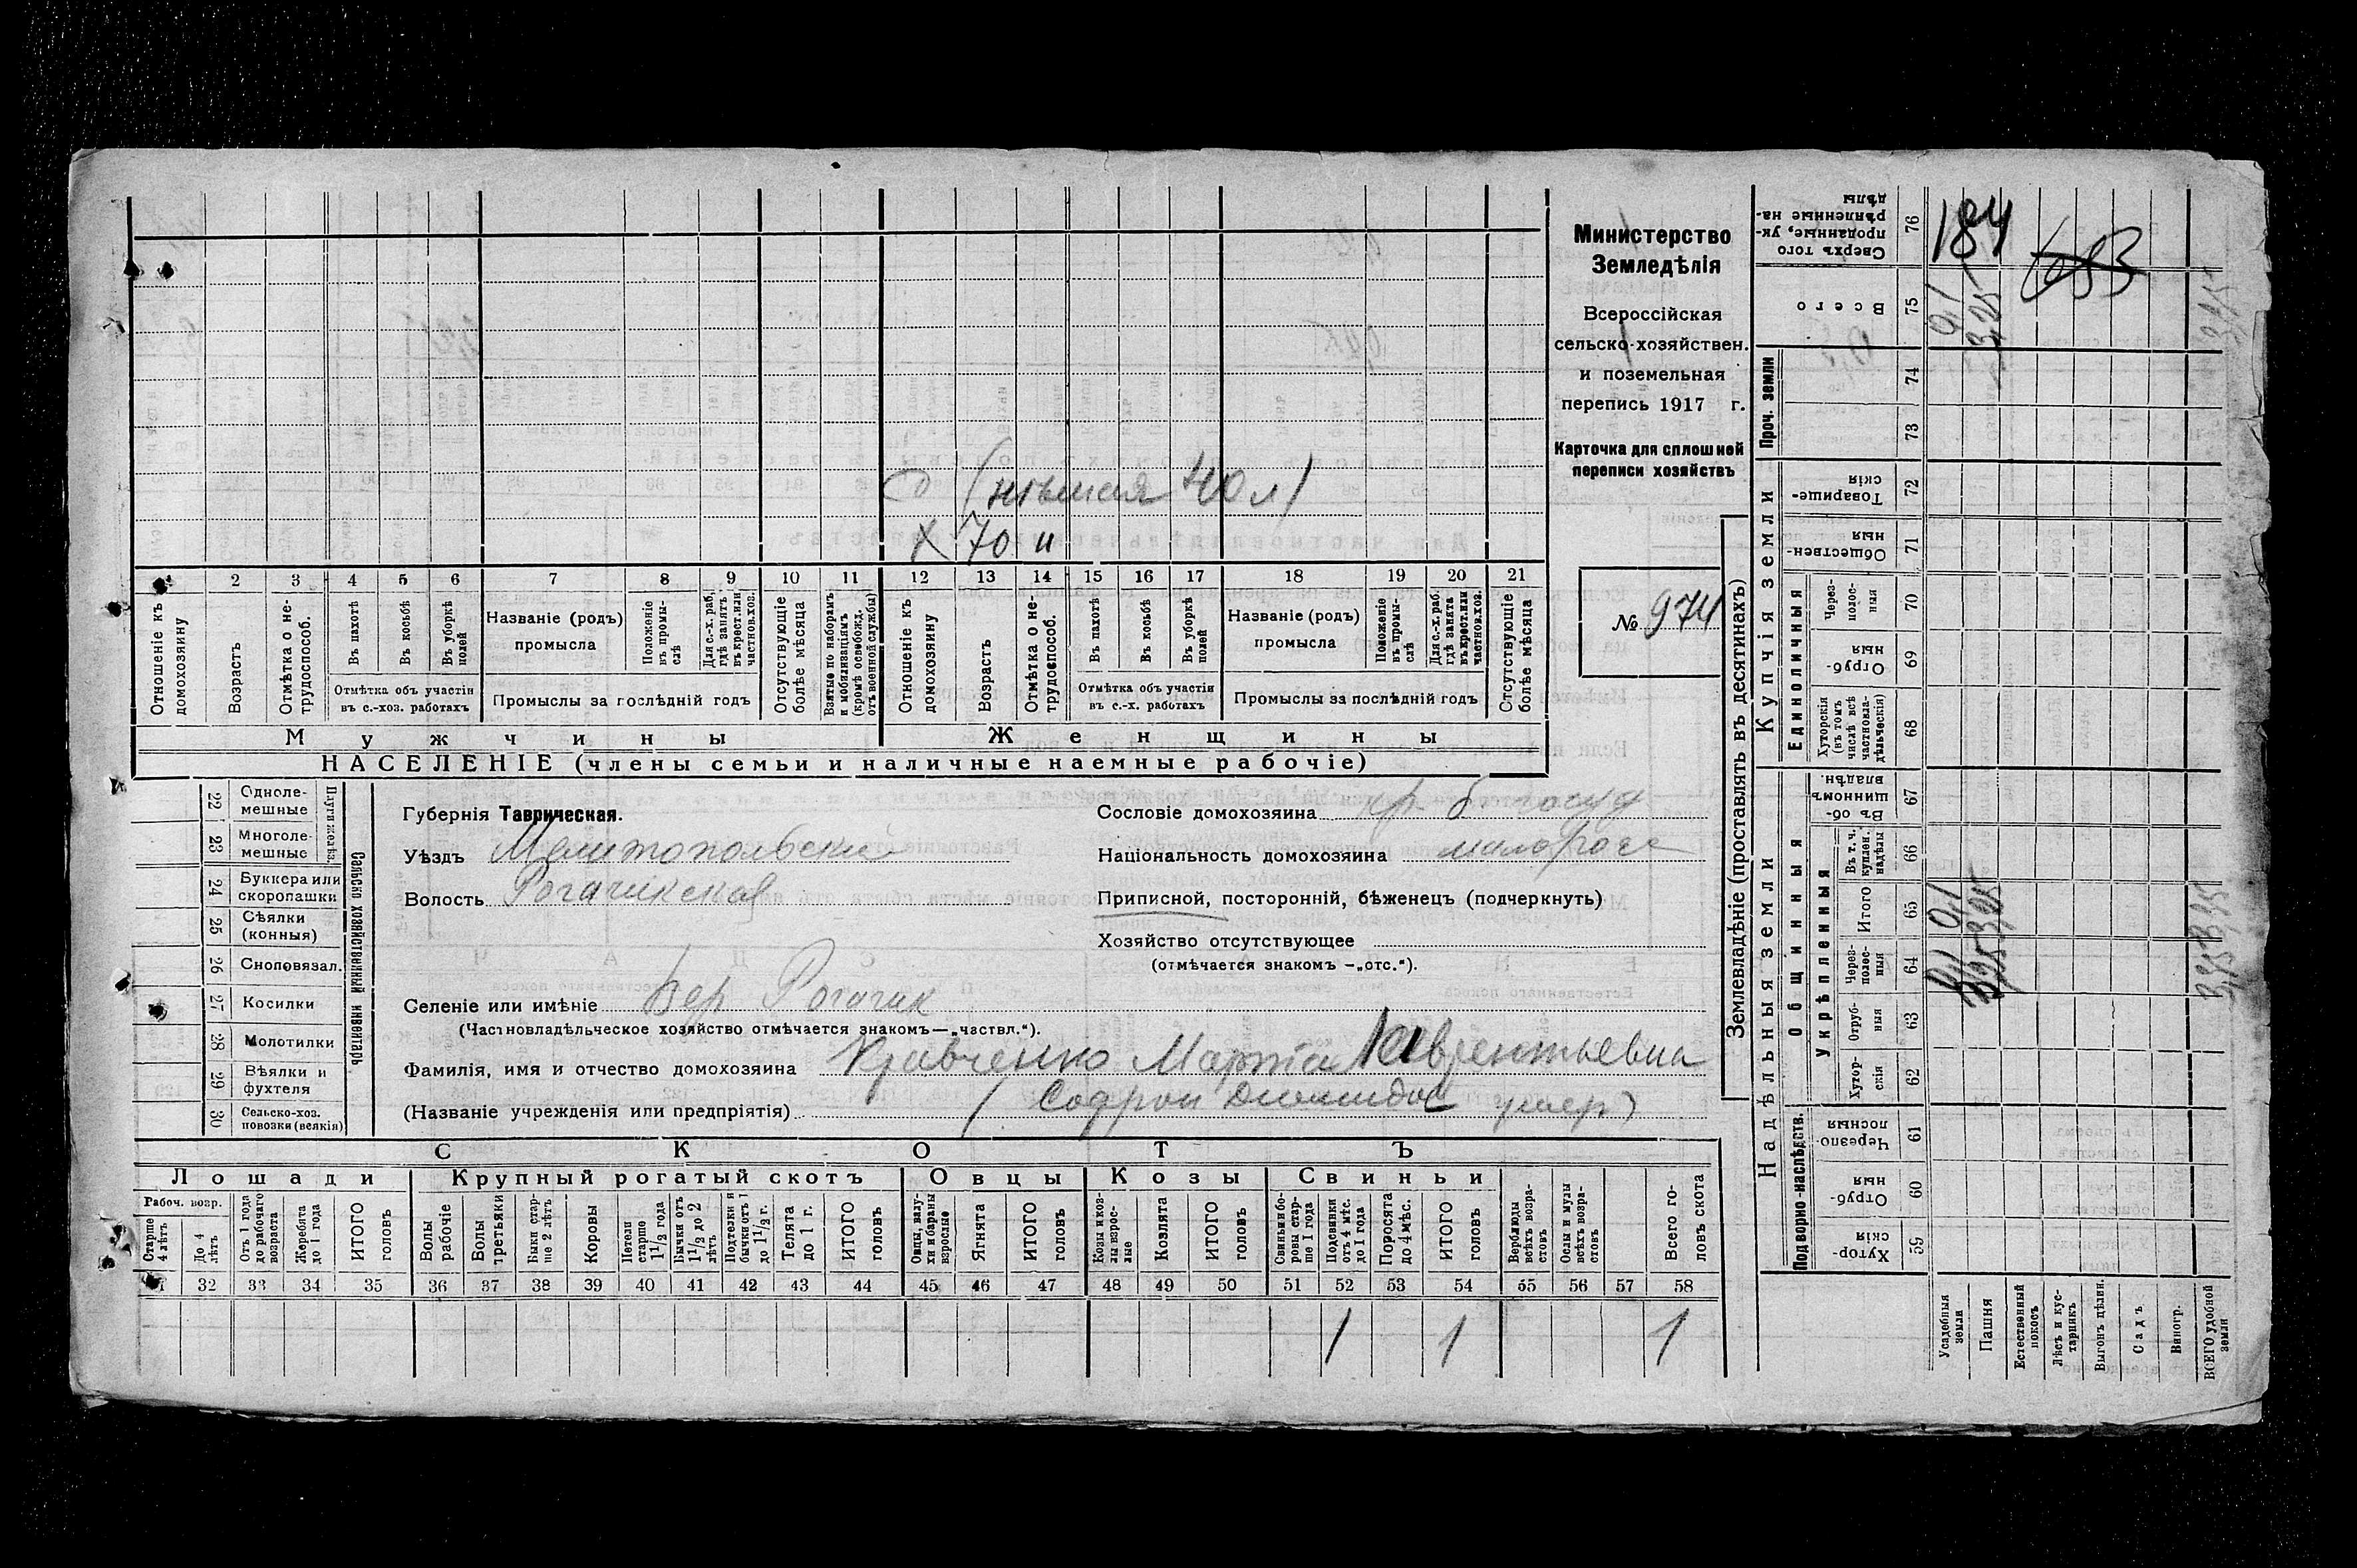 Министерство
Земледѣлія
Всероссійская
сельско-хозяйствен.
и поземельная
перепись 1917 г.
Карточка для сплошной
переписи хозяйствъ
№ 974
184
(нѣмая 40 л)
X 70 н
1 2 3 4 5 6 7 8 9 10 11 12 13 14 15 16 17 18 19 20 21
Отношеніе къ домохозяину
Возрастъ
Отмѣтка о не-трудоспособ.
Въ пахотѣ
Въ косьбѣ
Въ уборкѣ полей
Отмѣтка объ участіи въ с.-хоз. работахъ
Названіе (родъ) промысла
Положеніе въ промы-слѣ
Для с.-х. раб. гдѣ занятъ въ крест. или частнов. хоз.
Промыслы за послѣдній годъ
Отсутствующіе болѣе мѣсяца
Взятые по наборамъ и мобилизаціямъ (кромѣ освобожд. отъ военной службы)
Отношеніе къ домохозяину
Возрастъ
Отмѣтка о не-трудоспособ.
Въ пахотѣ
Въ косьбѣ
Въ уборкѣ полей
Отмѣтка объ участіи въ с.-х. работахъ
Названіе (родъ) промысла
Положеніе въ промы-слѣ
Для с.-х. раб. гдѣ занята въ крест. или частнов. хоз.
Промыслы за послѣдній годъ
Отсутствующіе болѣе мѣсяца
Мужчины Женщины
НАСЕЛЕНІЕ (члены семьи и наличные наемные рабочіе)
Сельско хозяйственный инвентарь
22 Одноле-мешные
23 Многоле-мешные
24 Буккера или скоропашки
25 Сѣялки (конныя)
26 Сноповязал.
27 Косилки
28 Молотилки
29 Вѣялки и фухтеля
30 Сельско-хоз. повозки (всякія)
Губернія Таврическая.
Уѣздъ Мелитопольский
Волость Рогачикская
Селеніе или имѣніе Вер Рогачик
(Частновладѣльческое хозяйство отмѣчается знакомъ—„частвл.“).
Сословіе домохозяина кр. б. госуд
Національность домохозяина малоросс
Приписной, посторонній, бѣженецъ (подчеркнуть)
Хозяйство отсутствующее
(отмѣчается знакомъ —„отс.“).
Фамилія, имя и отчество домохозяина Кравченко Марта Лаврентьевна
(Названіе учрежденія или предпріятія) (Софрон Диомидов умер)
СКОТЪ
Лошади Крупный рогатый скотъ Овцы Козы Свиньи
Рабоч. возр.
Старше 4 лѣтъ
До 4 лѣтъ
Отъ 1 года до рабочаго возраста
Жеребята до 1 года
ИТОГО головъ
Волы рабочіе
Волы третьяки
Быки стар-ше 2 лѣтъ
Коровы
Нетели старше 1 1/2 года
Бычки отъ 1 1/2 до 2 лѣтъ
Подтелки и бычки отъ 1 до 1 1/2 г.
Телята до 1 г.
ИТОГО головъ
Овцы, валу-хи и бараны взрослые
Ягнята
ИТОГО головъ
Козы и коз-лы взрос-лые
Козлята
ИТОГО головъ
Свиньи и бо-ровы стар-ше 1 года
Подсвинки отъ 4 мѣс. до 1 года
Поросята до 4 мѣс.
ИТОГО головъ
Верблюды всѣхъ возра-стовъ
Ослы и мулы всѣхъ возра-стовъ
Всего го-ловъ скота
32 33 34 35 36 37 38 39 40 41 42 43 44 45 46 47 48 49 50 51 52 53 54 55 56 57 58
1 1 1
Землевладѣніе (проставлять въ десятинахъ)
Надѣльныя земли
Купчія земли
Проч. земли
Подворно-наслѣдств.
Общинныя
Укрѣпленныя
Единоличныя
Сверхъ того проданные, ук-рѣпленные на-дѣлы 76
Всего 75 0,1 3,25
74
73
Товарище-скія 72
Обществен-ныя 71
Через-полос-ныя 70
Отруб-ныя 69
Хуторскія (въ томъ числѣ всѣ частновла-дѣльческія) 68
Въ об-щинномъ владѣн. 67
Въ т. ч. куплен. надѣлы 66
Итого 65 0,1 3,25
Через-полос-ныя 64
Отруб-ныя 63
Хутор-скія 62
Черезпо-лосныя 61
Отруб-ныя 60
Хутор-скія 59
Усадебныя земли
Пашня
Естественный покосъ
Лѣсъ и кус-тарникъ
Выгонъ цѣлин.
Садъ
Виногр.
ВСЕГО удобной земли